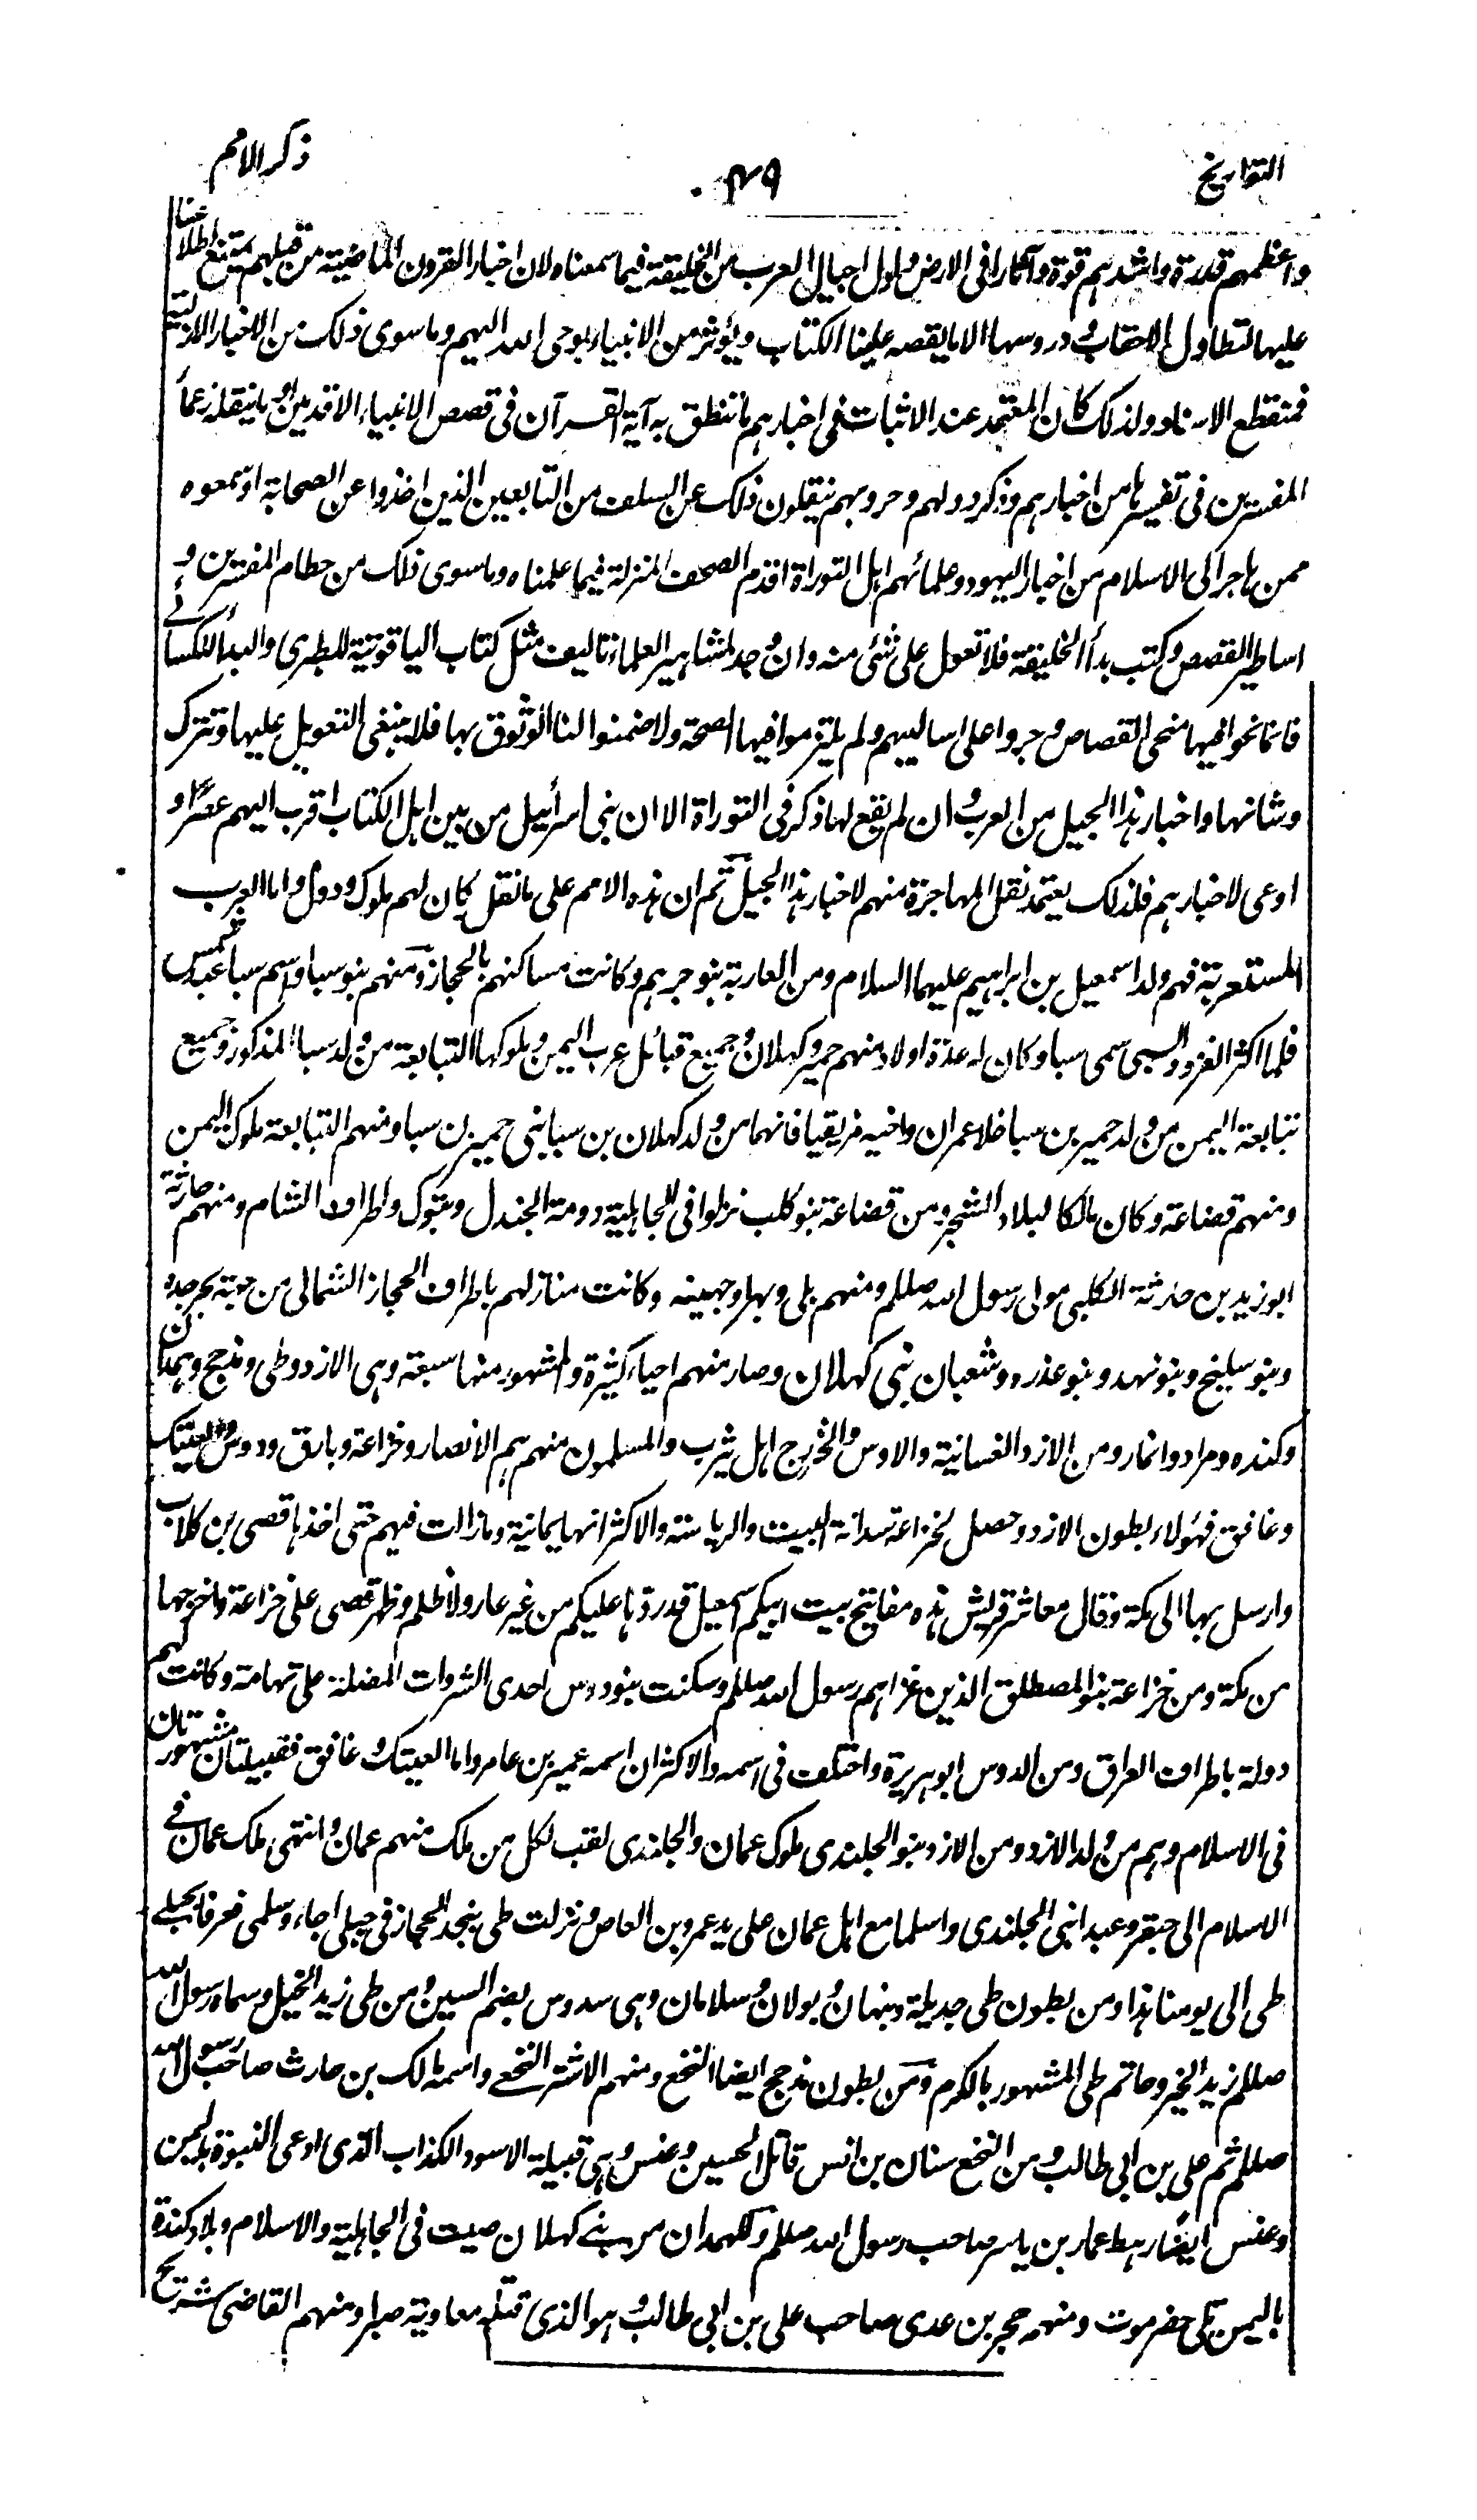 التواريخ
٤٩
ذكر الامم
واعظمهم قدرة واشدهم قوة وآثارا فى الارض واول اجيال العرب من الخليقة فيما سمعناه ولان اخبار القرون الماضية من قبلهم يمتنع اطلاعنا
عليها لتطاول الاحقاب ودروسها الا ما يقصه علينا الكتاب ويؤثر من الانبياء بوحى الله اليهم وما سوى ذلك من الاخبار الازلية
فمنقطع الاسناد ولذلك كان المعتمد عند الاثبات فى اخبارهم ما تنطق به آية القرآن فى قصص الانبياء الاقدمين او ما ينقله زعماء
المفسرين فى تفسيرها من اخبارهم وذكر دولهم وحروبهم ينقلون ذلك عن السلف من التابعين الذين اخذوا عن الصحابة او سمعوه
ممن هاجر الى الاسلام من احبار اليهود وعلمائهم اهل التوراة اقدم الصحف المنزلة فيما علمناه وما سوى ذلك من حطام المفسرين و
اساطير القصص وكتب بدأ الخليقة فلا تعول على شئ منه وان وجد لمشاهير العلماء تاليف مثل كتاب الياقوتية للطبرى والبدأ للكسائے
فانما نحوا فيها منحى القصاص وجروا على اساليبهم ولم يلتزموا فيها الصحة ولا ضمنوا لنا الوثوق بها فلا ينبغى التعويل عليها وتترك
وشانها واخبار هذا الجيل من العرب وان لم يقع لها ذكر فى التوراة الا ان بنى اسرائيل من بين اهل الكتاب اقرب اليهم عصرًا و
اوعى لاخبارهم فلذلك يعتمد نقل المهاجرة منهم لاخبار هذا الجيل ثم ان هذه الامم على ما نقل كان لهم ملوك ودول واما العرب
المستعربة فهم ولد اسمعيل بن ابراهيم عليهما السلام ومن العاربة بنو جرهم وكانت مساكنهم بالحجاز ومنهم بنو سبا واسم سبا عبد شمس
فلما اكثر الغزو والسبى سمى سبا وكان له عدة اولاد منهم حمير وكهلان وجميع قبائل عرب اليمن وملوكها التبابعة من ولد سبا المذكور وجميع
تبابعة اليمن من ولد حمير بن سبا خلا عمران واخيه مزيقيا فانهما من ولد كهلان بن سبا بنى حمير بن سبا ومنهم التبابعة ملوك اليمن
ومنهم قضاعة وكان مالكا لبلاد الشحر ومن قضاعة بنو كلب نزلوا فى الجاهلية دومة الجندل وتبوك واطراف الشام ومنهم حارثة
ابو زيد بن حارثة الكلبى مولى رسول الله صللم ومنهم بلى وبهرا وجهينه وكانت منازلهم باطراف الحجاز الشمالى من جهة بحر جده
وبنو سليخ وبنو نهد وبنو عذره وشعبان بنى كهلان وصار منهم احياء كثيرة والمشهور منها سبعة وهى الازد وطى ومذحج وهمدان
وكنده ومراد وانمار ومن الازد الغسانية والاوس والخزرج اهل يثرب والمسلمون منهم هم الانصار وخزاعة وبارق ودوس والعتيك
وغافق فهؤلاء بطون الازد وحصل لخزاعة سدانة البيت والرياسته والاكثر انها يمانية وما زالت فيهم حتى اخذها قصى بن كلاب
وارسل بها الى مكة وقال معاشر قريش هذه مفاتيح بيت ابيكم اسمعيل قد ردها عليكم من غير عار ولا ظلم وظهر قصى على خزاعة واخرجها
من مكة ومن خزاعة بنو المصطلق الذين غزاهم رسول الله صللم وسكنت بنو دوس احدى الشروات المضلة على تهامة وكانت لهم
دولة باطراف العراق ومن الدوس ابو هريرة واختلف فى اسمه والاكثر ان اسمه عمير بن عامر واما العيتك وغافق فقبيلتان مشهورتان
فى الاسلام وهم من ولد الازد ومن الازد بنو الجلندى ملوك عمان والجلندى لقب لكل من ملك منهم عمان وانتهى ملك عمان فے
الاسلام الى جيفر وعبد ابنى الجلندى واسلما مع اهل عمان على يد عمرو بن العاص ونزلت طى بنجد الحجاز فى جبلى اجاء وسلمى فعرفا بجبلے
طى الى يومنا هذا ومن بطون طى جديلة ونبهان وبولان وسلامان وهى سدوس بضم السين ومن طى زيد الخيل وسماه رسول الله
صللم زيد الخير وحاتم طى المشهور بالكرم ومن بطون مذحج ايضا النخع ومنهم الاشتر النخعے واسمه مالك بن حارث صاحب رسول الله
صللم ثم على بن ابى طالب ومن النخع سنان بن انس قاتل الحسين وعنس وهى قبيلة الاسود الكذاب الذى ادعى النبوة باليمن
وعنس ايضًا رهط عمار بن ياسر صاحب رسول الله صللم وللهمدان من بنے كهلان صيت فى الجاهلية والاسلام وبلاد كندة
باليمن تلى حضرموت ومنهم حجر بن عدى صاحب على بن ابى طالب وهو الذى قتله معاوية صبرا ومنهم القاضى شريح